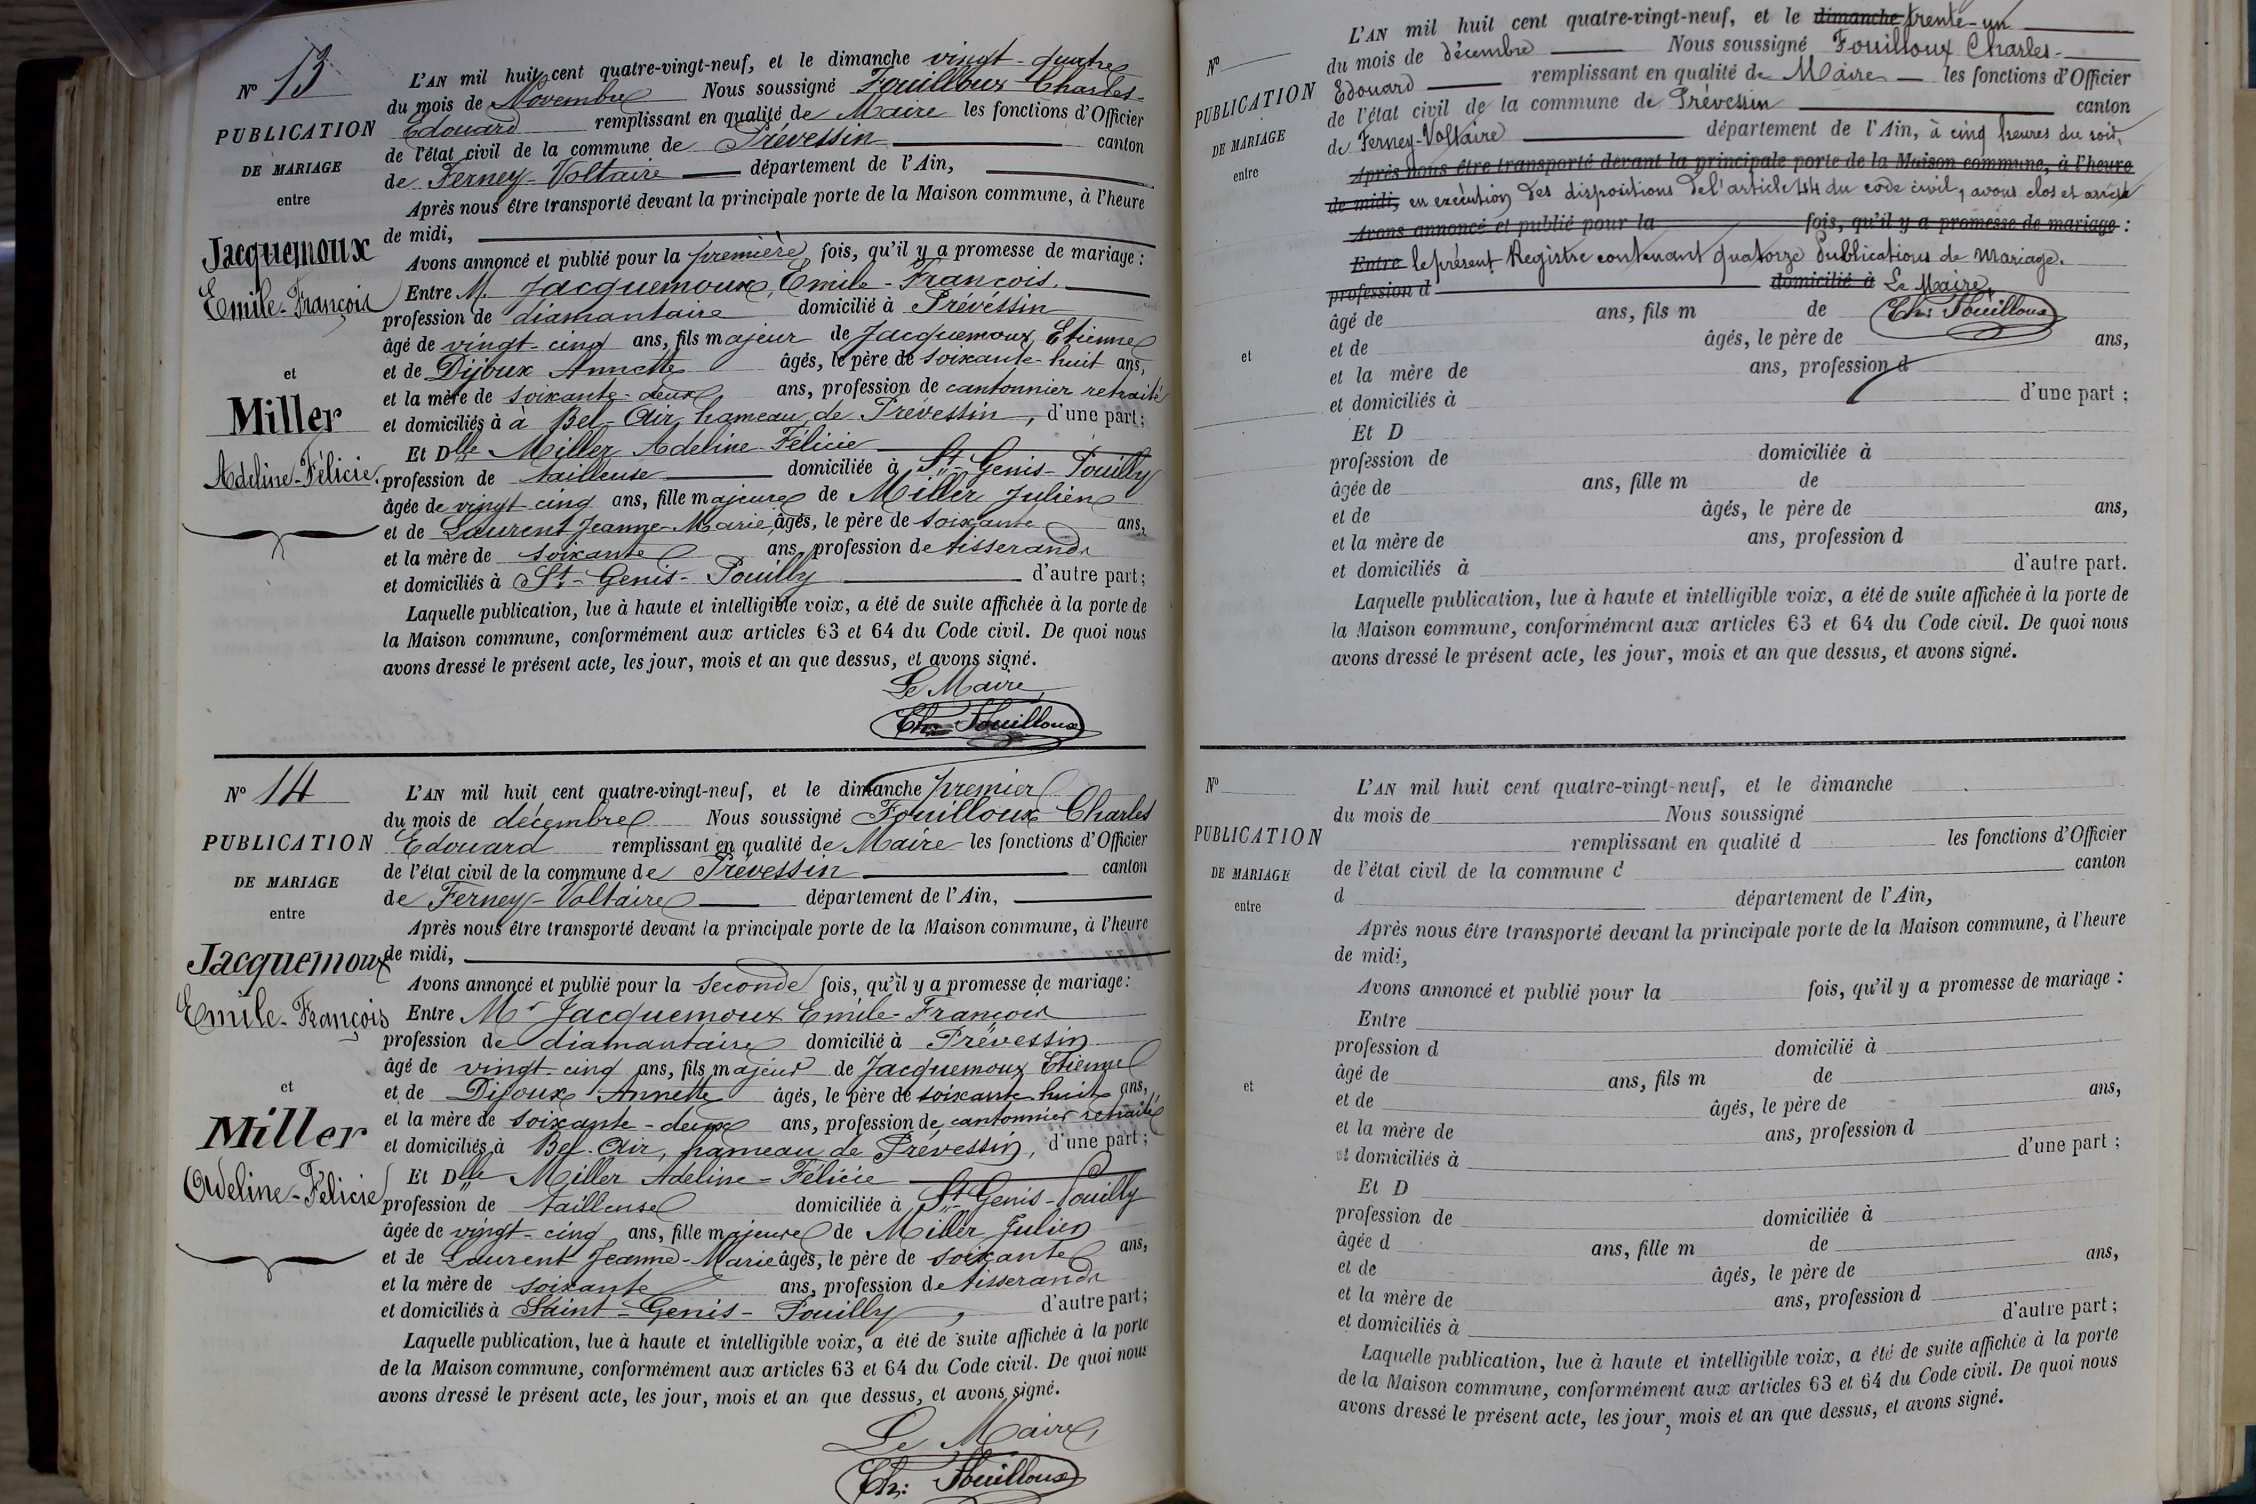 N° 13
PUBLICATION
DE MARIAGE
entre
Jacquemoux
Emile-François
et
Miller
Adeline-Félicie.
L'AN mil huit cent quatre-vingt-neuf, et le dimanche vingt-quatre
du mois de Novembre Nous soussigné Fouilloux Charles-
Edouard remplissant en qualité de Maire les fonctions d'Officier
de l'état civil de la commune de Prévessin canton
de Ferney-Voltaire département de l'Ain,
Après nous être transporté devant la principale porte de la Maison commune, à l'heure
de midi,
Avons annoncé et publié pour la première fois, qu'il y a promesse de mariage :
Entre M. Jacquemoux, Emile-François.
profession de diamantaire domicilié à Prévessin
âgé de vingt-cinq ans, fils majeur de Jacquemoux, Etienne
et de Dijoux Annette âgés, le père de soixante-huit ans,
et la mère de soixante-deux ans, profession de cantonnier retraité
et domiciliés à à Bel-Air, hameau de Prévessin, d'une part ;
Et Dlle Miller Adeline-Félicie
profession de tailleuse domiciliée à St-Genis-Pouilly
âgée de vingt-cinq ans, fille majeure de Miller Julien
et de Laurent Jeanne-Marie, âgés, le père de soixante ans,
et la mère de soixante ans, profession de tisserands
et domiciliés à St-Genis-Pouilly d'autre part ;
Laquelle publication, lue à haute et intelligible voix, a été de suite affichée à la porte de
la Maison commune, conformément aux articles 63 et 64 du Code civil. De quoi nous
avons dressé le présent acte, les jour, mois et an que dessus, et avons signé.
Le Maire,
Ch: Fouilloux
N° 14
PUBLICATION
DE MARIAGE
entre
Jacquemoux
Emile-François
et
Miller
Adeline-Félicie
L'AN mil huit cent quatre-vingt-neuf, et le dimanche premier
du mois de décembre Nous soussigné Fouilloux Charles
Edouard remplissant en qualité de Maire les fonctions d'Officier
de l'état civil de la commune de Prévessin canton
de Ferney-Voltaire département de l'Ain,
Après nous être transporté devant la principale porte de la Maison commune, à l'heure
de midi,
Avons annoncé et publié pour la seconde fois, qu'il y a promesse de mariage :
Entre Mr Jacquemoux Emile-François
profession de diamantaire domicilié à Prévessin
âgé de vingt-cinq ans, fils majeur de Jacquemoux Etienne
et de Dijoux Annette âgés, le père de soixante-huit ans,
et la mère de soixante-deux ans, profession de cantonnier retraité
et domiciliés à Bel-Air, hameau de Prévessin, d'une part ;
Et Dlle Miller Adeline-Félicie
profession de tailleuse domiciliée à St-Genis-Pouilly
âgée de vingt-cinq ans, fille majeure de Miller Julien
et de Laurent Jeanne-Marie âgés, le père de soixante ans,
et la mère de soixante ans, profession de tisserands
et domiciliés à Saint-Genis-Pouilly, d'autre part ;
Laquelle publication, lue à haute et intelligible voix, a été de suite affichée à la porte
de la Maison commune, conformément aux articles 63 et 64 du Code civil. De quoi nous
avons dressé le présent acte, les jour, mois et an que dessus, et avons signé.
Le Maire,
Ch: Fouilloux
N°
PUBLICATION
DE MARIAGE
entre
et
L'AN mil huit cent quatre-vingt-neuf, et le dimanche trente-un
du mois de décembre Nous soussigné Fouilloux Charles-
Edouard remplissant en qualité de Maire les fonctions d'Officier
de l'état civil de la commune de Prévessin canton
de Ferney-Voltaire département de l'Ain, à cinq heures du soir,
Après nous être transporté devant la principale porte de la Maison commune, à l'heure
de midi, en exécution des dispositions de l'article 44 du code civil, avons clos et arrêté
Avons annoncé et publié pour la fois, qu'il y a promesse de mariage :
Entre le présent Registre contenant quatorze Publications de Mariage.
profession d domicilié à Le Maire,
âgé de ans, fils m de Ch: Fouilloux
et de âgés, le père de ans,
et la mère de ans, profession d
et domiciliés à d'une part ;
Et D
profession de domiciliée à
âgée de ans, fille m de
et de âgés, le père de ans,
et la mère de ans, profession d
et domiciliés à d'autre part.
Laquelle publication, lue à haute et intelligible voix, a été de suite affichée à la porte de
la Maison commune, conformément aux articles 63 et 64 du Code civil. De quoi nous
avons dressé le présent acte, les jour, mois et an que dessus, et avons signé.
N°
PUBLICATION
DE MARIAGE
entre
et
L'AN mil huit cent quatre-vingt-neuf, et le dimanche
du mois de Nous soussigné
remplissant en qualité d les fonctions d'Officier
de l'état civil de la commune d canton
d département de l'Ain,
Après nous être transporté devant la principale porte de la Maison commune, à l'heure
de midi,
Avons annoncé et publié pour la fois, qu'il y a promesse de mariage :
Entre
profession d domicilié à
âgé de ans, fils m de
et de âgés, le père de ans,
et la mère de ans, profession d
et domiciliés à d'une part ;
Et D
profession de domiciliée à
âgée d ans, fille m de
et de âgés, le père de ans,
et la mère de ans, profession d
et domiciliés à d'autre part ;
Laquelle publication, lue à haute et intelligible voix, a été de suite affichée à la porte
de la Maison commune, conformément aux articles 63 et 64 du Code civil. De quoi nous
avons dressé le présent acte, les jour, mois et an que dessus, et avons signé.